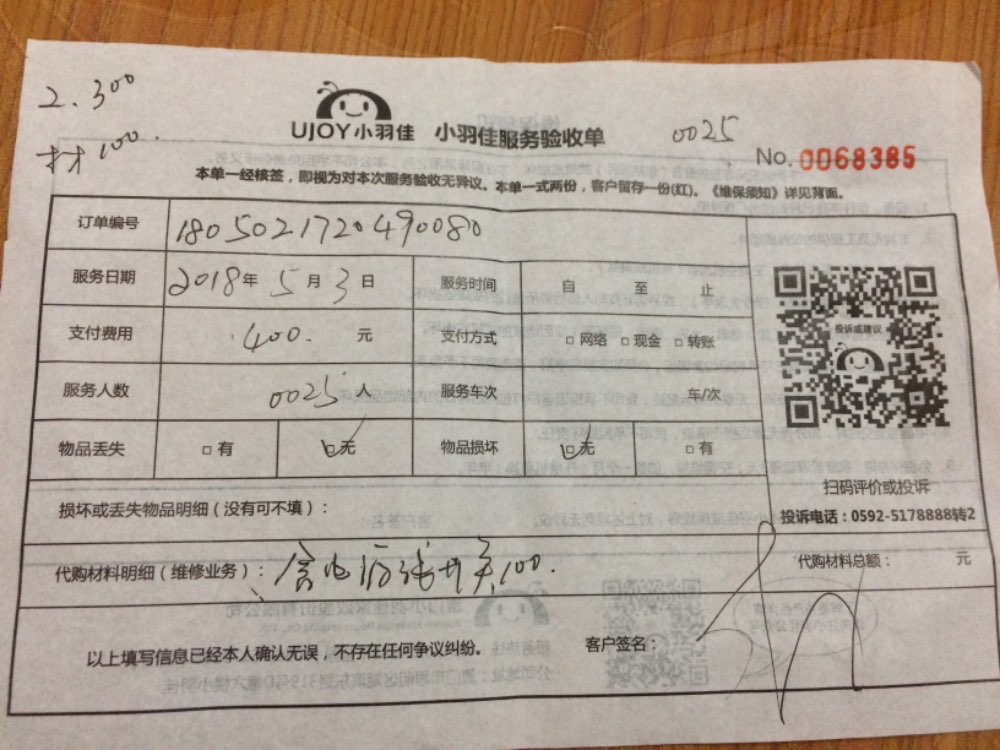 2.300
材100.
UJOY小羽佳 小羽佳服务验收单
0025
No. 0068385
本单一经核签，即视为对本次服务验收无异议。本单一式两份，客户留存一份(红)。《维保须知》详见背面。
订单编号 1805021720490080
服务日期 2018年5月3日 服务时间 自 至 止
支付费用 400. 元 支付方式 □网络 □现金 □转账
投诉或建议
服务人数 0025人 服务车次 车/次
物品丢失 □有 □无 物品损坏 □无 □有
扫码评价或投诉
损坏或丢失物品明细（没有可不填）：
投诉电话：0592-5178888转2
代购材料明细（维修业务）：含电 开关100.
代购材料总额： 元
以上填写信息已经本人确认无误，不存在任何争议纠纷。 客户签名：